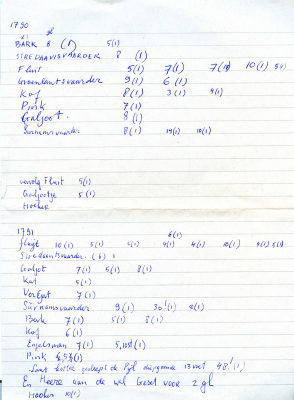 1790
BARK 6 (1) 5(1)
STREDAAVISVAARDER 8 (1)
Fluit 5(1) 7(1) 7(1) 10(1) 5(1)
Groenlantsvaarder 9(1) 6(1)
Kof 8(1) 3(1) 4(1)
Pink 7(1)
Galjoot. 8(1)
Surinamsvaarder 8(1) 14(1) 10(1)
vervolg Fluit 5(1)
Galjootje 5(1)
Hoeker
1791
6(1)
fluyt 10(1) 5(1) 5(1) 4(1) 4(1) 10(1) 4(1) 5(1)
Galjot 7(1) 5(1) 8(1)
Kat 5(1)
7(1)
Surinamsvaarder 9(1) 30!(1) 8(1)
Bark 7(1) 5(1) 8(1)
Kof 6(1)
Engelsman 7(1)
Pink
13 voet 48!(1)
En Heere aan de wal Geset voor 2 gl
Hoeker 10(1)